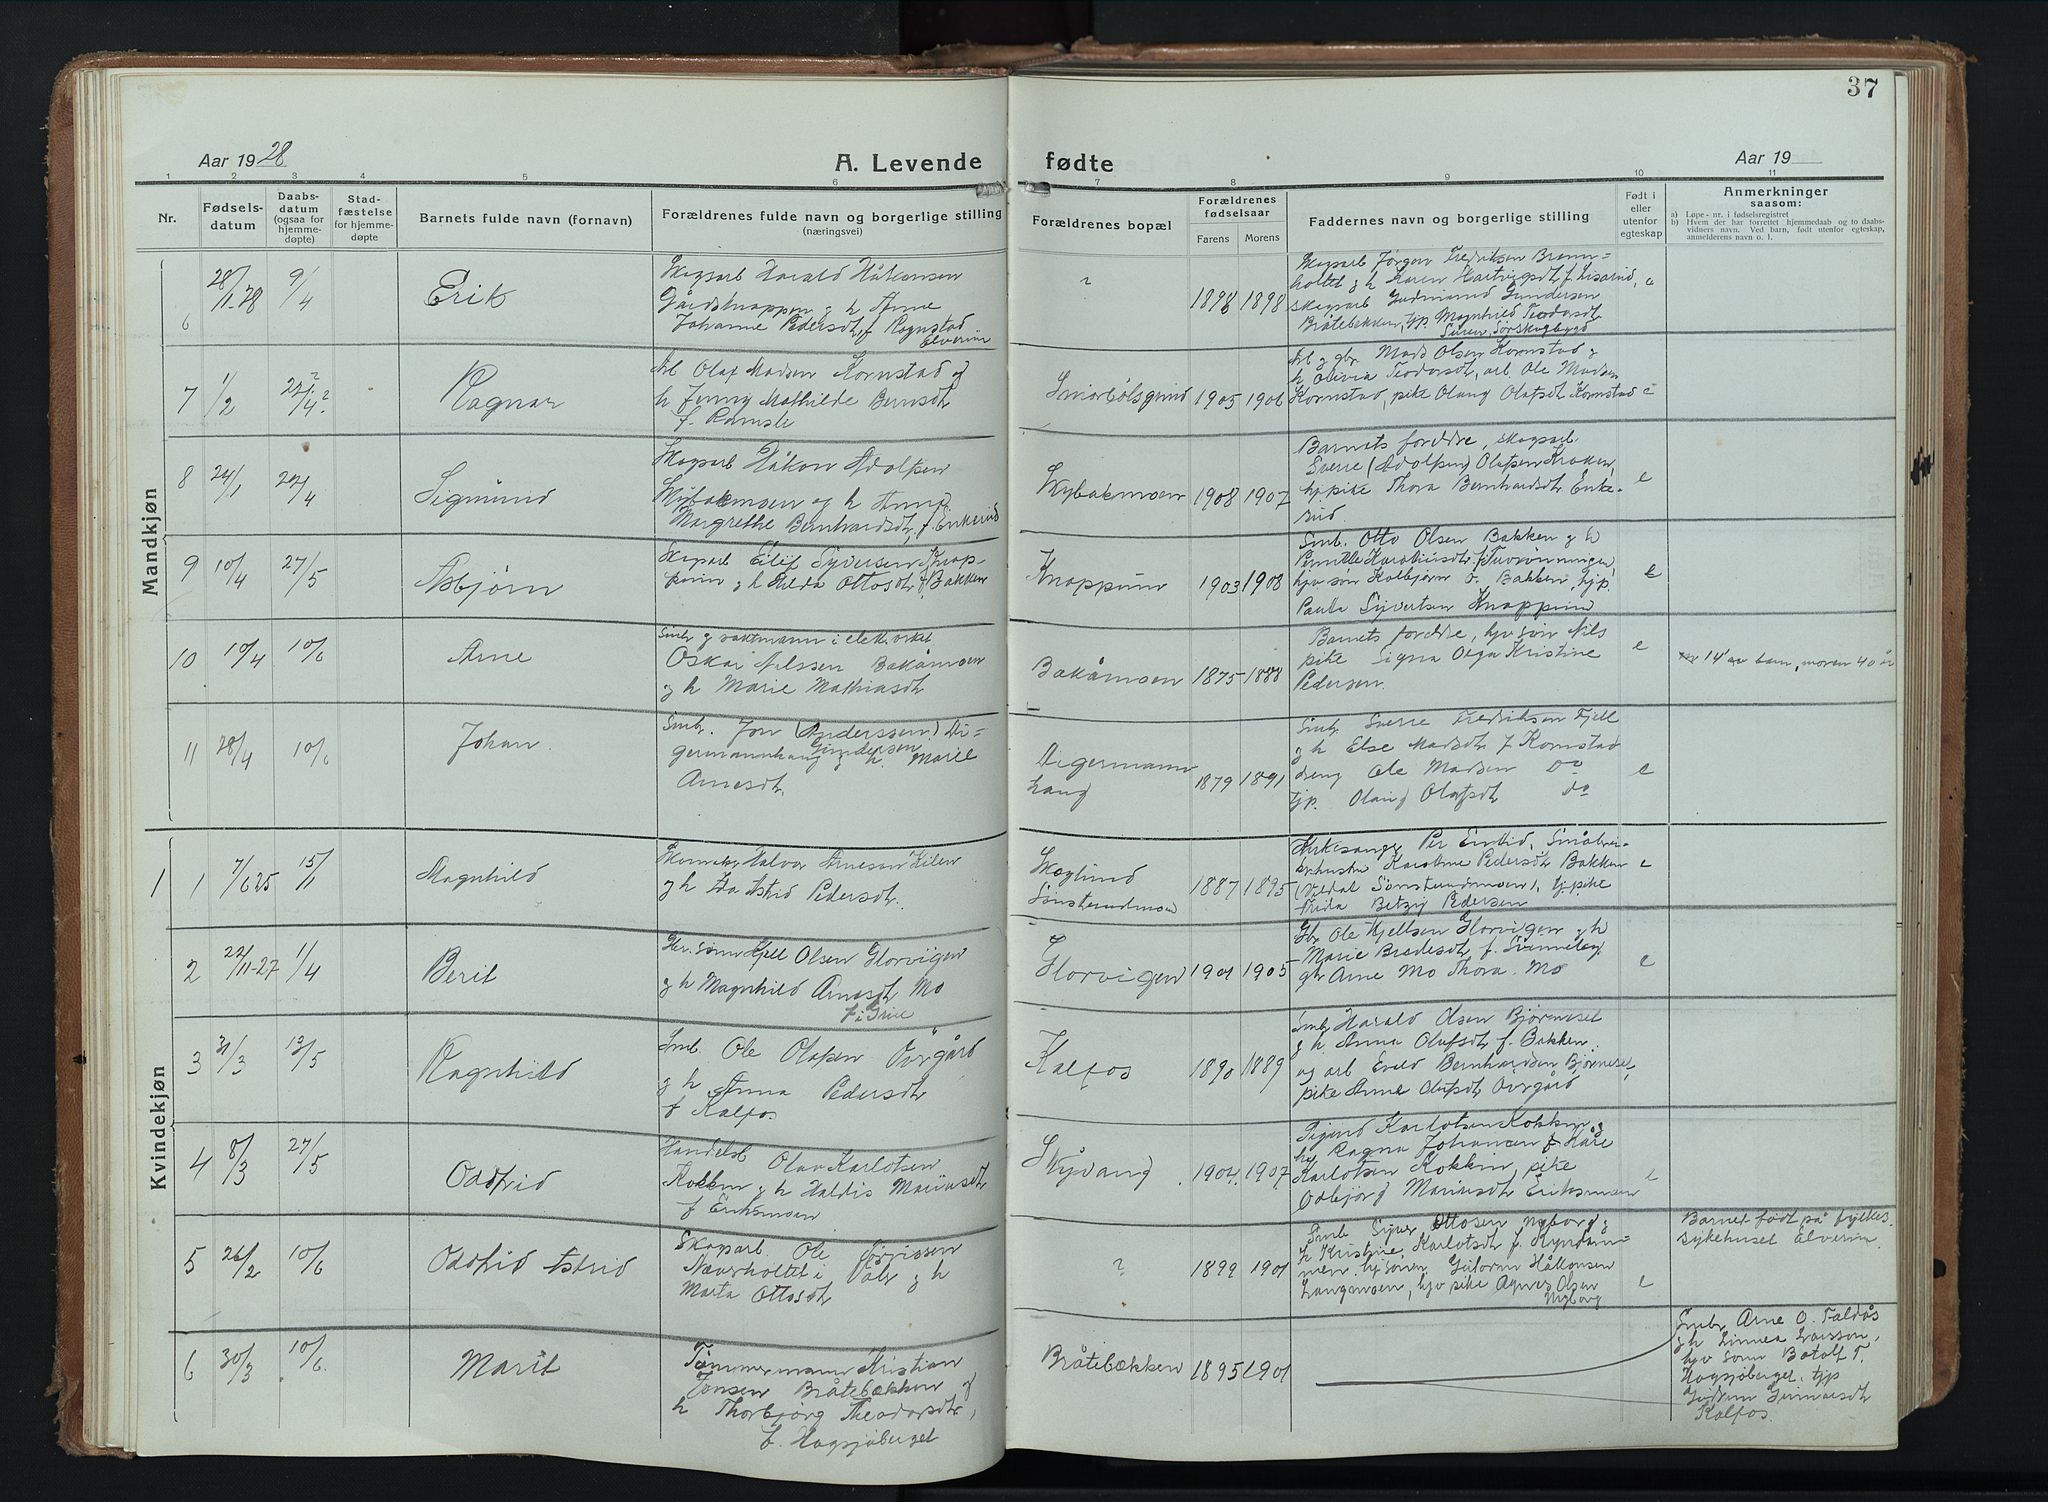 37
Aar 1928
A. Levende
fødte
Aar 19
1 2 3 4 5 6 7 8 9 10 11
Nr.
Fødsels-
datum
Daabs-
datum
(ogsaa for
hjemme-
døpte)
Stad-
fæstelse
for hjemme-
døpte
Barnets fulde navn (fornavn)
Forældrenes fulde navn og borgerlige stilling
(næringsvei)
Forældrenes bopæl
Forældrenes
fødselsaar
Farens Morens
Faddernes navn og borgerlige stilling
Født i
eller
utenfor
egteskap
Anmerkninger
saasom:
a) Løpe-nr. i fødselsregistret
b) Hvem der har forrettet hjemmedaab og to daabs-
vidners navn. Ved barn, født utenfor egteskap,
anmelderens navn o. l.
Mandkjøn
6 28/1-28 9/4 Erik
Skogsarb Harald Håkonsen
Gårdsknappen g h Anne
Johanne Pedersdt, f Rognstad
Elverum
" 1898 1898
Skogsarb Jørgen Fredriksen Brenn=
holtet g h Karen Hartvigsdt f
skogsarb Gudmund Gundersen
Bråtebekken, tjp. Magnhild Teodorsdt
Søren, Sørskogbygd
e
7 1/2 22/4
Ragnar
Arb Olaf Madsen Kornstad g
h Jenny Mathilde Berntsdt
f. Ramsli
1905 1906
Arb g gbr Mads Olsen Kornstad g
h Olivia Teodorsdt, arb Ole Madsen
Kornstad, pike Olaug Olafsdt Kornstad
e
8 24/1 22/4 Sigmund
Skogsarb Håkon Adolfsen
Skybakmoen og h Anna
Margrethe Bernhardsdt. f Enkerud
Skybakmoen 1908 1907
Barnets foreldre, skogsarb.
Sverre (Adolfsen) Olafsen Kroken,
hj pike Thora Bernhardsdt Enke-
rud.
e
9 10/4 27/5 Asbjørn
Skogsarb Eilif Syversen Knap-
perin g h Hilda Ottosdt f Bakken
1903 1908
Smb. Otto Olsen Bakken g h
Pernille
hjv søn Kolbjørn O. Bakken, hjp.
Paula Syvertsen
e
10 10/4 10/6 Arne
Smbr g vaktmann i elektr verket
Oskar Nilssen Bakåmoen
g h Marie Mathiasdt
Bakåmoen 1875 1888
Barnets foreldre, hjv søn Nils
pike Signa Olga Kristine
Pedersen.
e
14de barn, moren 40 år
11 28/4 10/6 Johan.
Smb. Jon (Anderssen) Di=
germannhaug Gundersen g h. Marie
Arnesdt.
Digermann
haug
1879 1891
Smb Sverre Fredriksen Fjell
g h Else Madsdt f Kornstad
dreng Ole Madsen Do
tjp. Olaug Olafsdt do
e
Kvindekjøn
1 1 7/6 25 15/1 Magnhild
Skomaker Halvor Arnesen Kilen
g h Ida Astrid Pedersdt.
Skoglund
Sønsterudmoen
1887 1895
Kirkesanger Per Enstid, Småbru-
kerhustru Karoline Pedersdt Bakken
(Videdal Sønsterudmoen), tj pike
Frida Betzy Pedersen
e
2 22/11-27 1/4 Berit
Gbr. sønn Kjell Olsen Glorvigen
g h Magnhild Arnesdt Mo
f i Grue
Glorvigen 1901 1905
Gbr Ole Kjellsen Glorvigen g h
Marie f.
gbr Arne Mo Thora. Mo
e
3 31/3 13/5 Ragnhild
Smb. Ole Olafsen Øvrgård
g h Anna Pedersdt
f Kalfos.
Kalfos 1890 1889
Smbr Harald Olsen Bjørneset
g h. Anna Olafsdt f. Bakken.
og arb Bernhardsen Bjørneset,
pike Anne Olafsdt Øvrgård
4 8/3 27/5 Oddfrid
Handelsb Olav Karlotsen
Kokkin g h Haldis Mariusdt
f Eriksmoen
Skyvang 1904. 1907.
Sigurd Karlotsen Kokkin g
h Ragna Johansen f Kåre
Karlotsen Kokkin, pike
Oddbjørg Mariusdt Eriksmoen
e
5 26/2 10/6 Oddfrid Astrid
Skogsarb. Ole Jørgissen
Næverholtet i Våler g h
Marta Ottosdt
" 1899 1901
Smb Syver Ottosen Nyborg g
h Kristine Karlotsdt f.
hj sønn Håkonsen
Langemoen, hjv pike Agnes Olsen
Nyborg
e
Barnet født på fylkes.
sykehuset Elverum.
6 30/3 10/6. Marit
Tømmermann Kristian
Jonsen Bråtebækken g
h Thorbjørg Theodorsdt,
f. Hogsjøberget
Bråtebækken 1895 1901
Smb. Arne O. Faldås
g h Linnea Larsson,
hjv sønn Botolf T.
Hogsjøberget, tjp
Gunnarsdt
Kalfos.